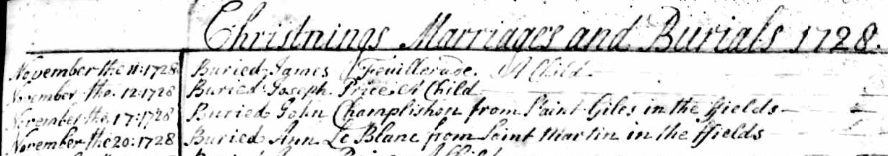 Christnings Marriages and Burials 1728.
November the 11: 1728 Buried James Feuillerade. A Child
November the 12: 1728 Buried Joseph Price A Child
November the 17: 1728 Buried John Champlishon from Saint Giles in the ffields
November the 20: 1728 Buried Ann Le Blanc from Saint Martin in the ffields